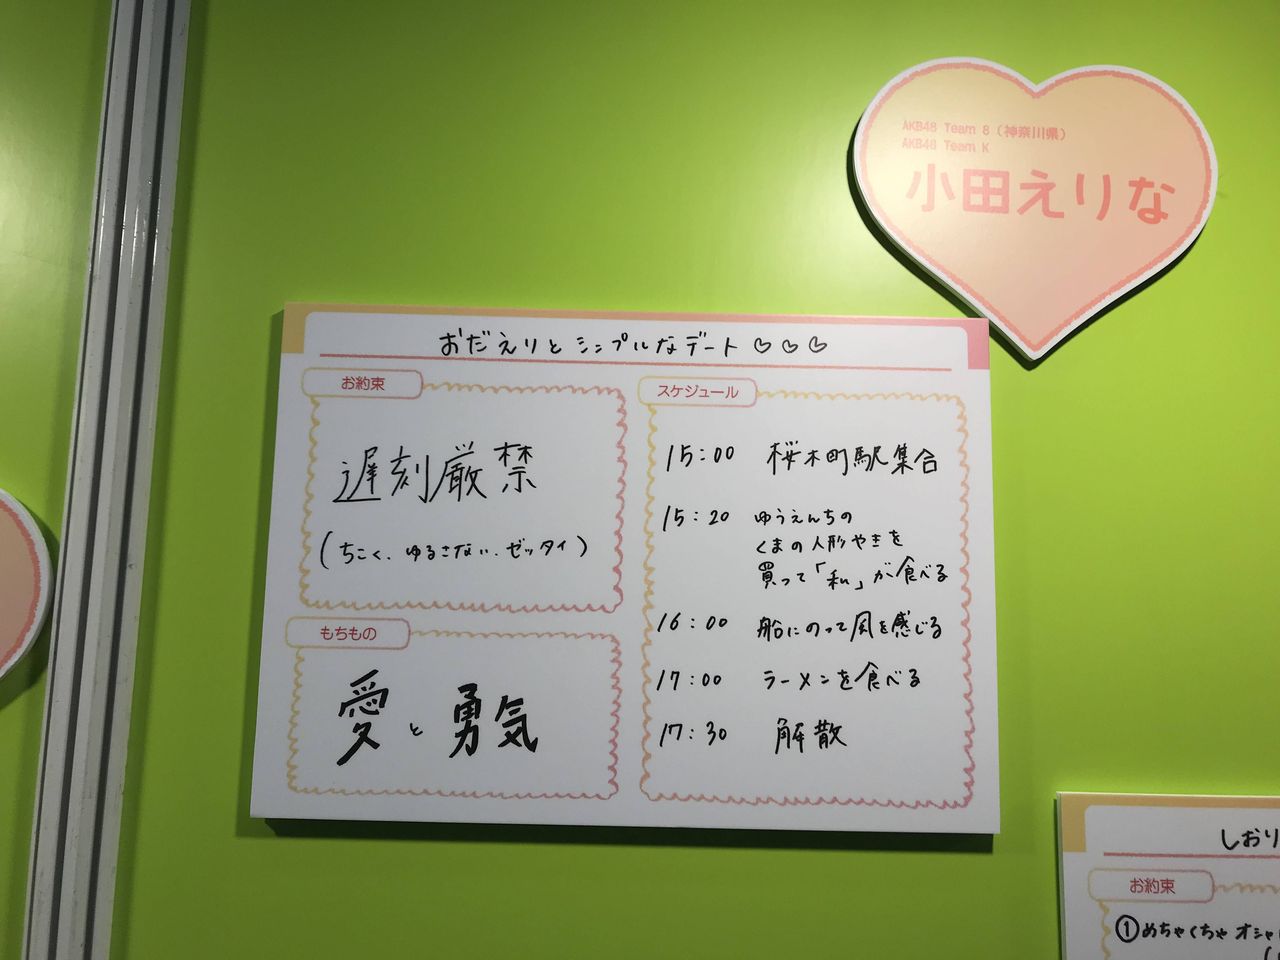 AKB48 Team 8（神奈川県）
AKB48 Team K
小田えりな
おだえりとシンプルなデート♡♡♡
お約束
遅刻厳禁
(ちこく、ゆるさない、ゼッタイ)
もちもの
愛と勇気
スケジュール
15:00 桜木町駅集合
15:20 ゆうえんちの
くまの人形やきを
買って「私」が食べる
16:00 船にのって風を感じる
17:00 ラーメンを食べる
17:30 解散
しおり
お約束
①めちゃくちゃオシャ